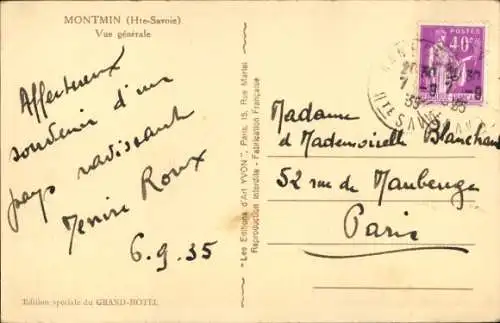 MONTMIN (Hte-Savoie)
Vue générale
Affectueux
souvenir d'un
pays ravissant
Roux
6.9.35
Edition spéciale du GRAND-HOTEL
"Les Editions d'Art YVON", Paris, 15, Rue Martel
Reproduction interdite - Fabrication Française
POSTES
40c
Hte SAVOIE
Madame
et Mademoiselle Blanchard
52 rue de Maubeuge
Paris